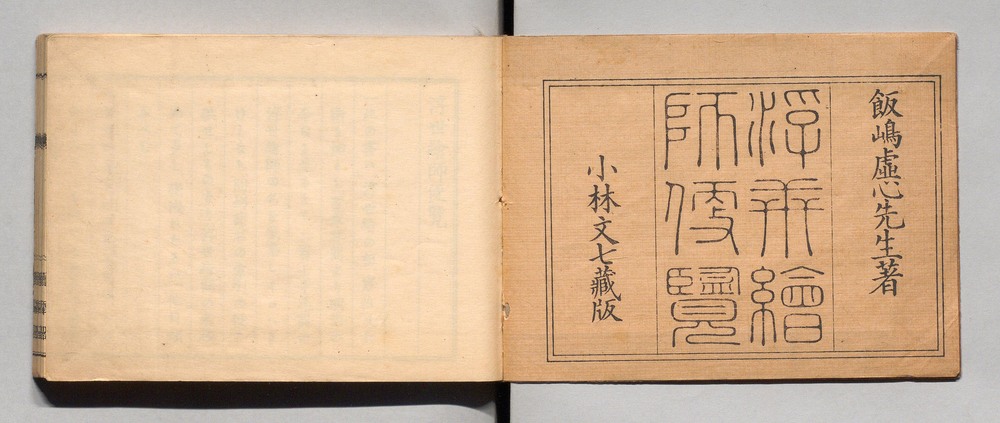 飯嶋虛心先生著
浮世繪
師便覽
小林文七藏版